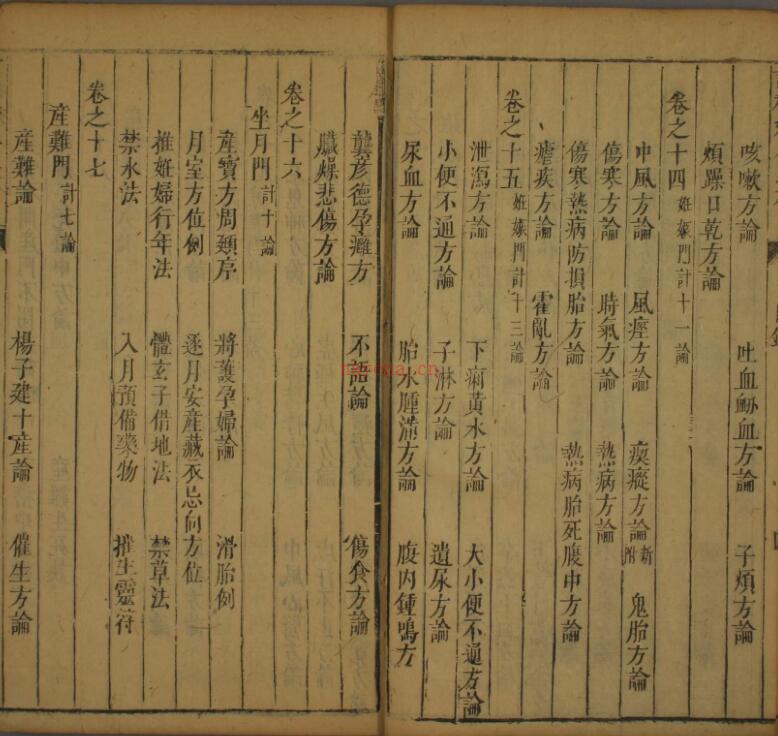 咳嗽方論 吐血衂血方論 子煩方論
煩躁口乾方論
卷之十四 妊娠門計十一論
中風方論 風痙方論 瘈瘲方論 新附 鬼胎方論
傷寒方論 時氣方論 熱病方論
傷寒熱病防損胎方論 熱病胎死腹中方論
瘧疾方論 霍亂方論
卷之十五 妊娠門計十三論
泄瀉方論 下痢黃水方論 大小便不通方論
小便不通方論 子淋方論 遺尿方論
尿血方論 胎水腫滿方論 腹內鍾鳴方
龔彥德孕癰方 不語論 傷食方論
臟燥悲傷方論
卷之十六
坐月門 計十論
產寶方周頲序 將護孕婦論 滑胎例
月室方位例 逐月安產藏衣忌向方位
推妊婦行年法 體玄子借地法 禁草法
禁水法 入月預備藥物 推生靈符
卷之十七
產難門 計七論
產難論 楊子建十產論 催生方論